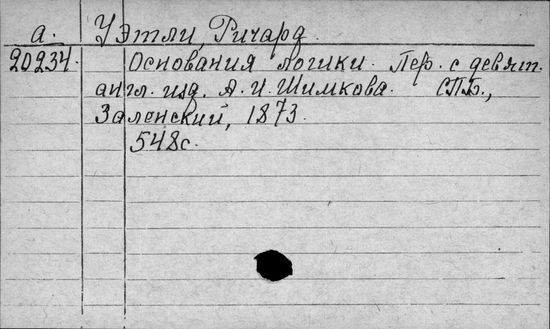 а. Уэтли, Ричард.
20234. Основания логики. Пер. с девят.
англ. изд. А. И. Шимкова. СПБ.,
Заленский, 1873.
548с.